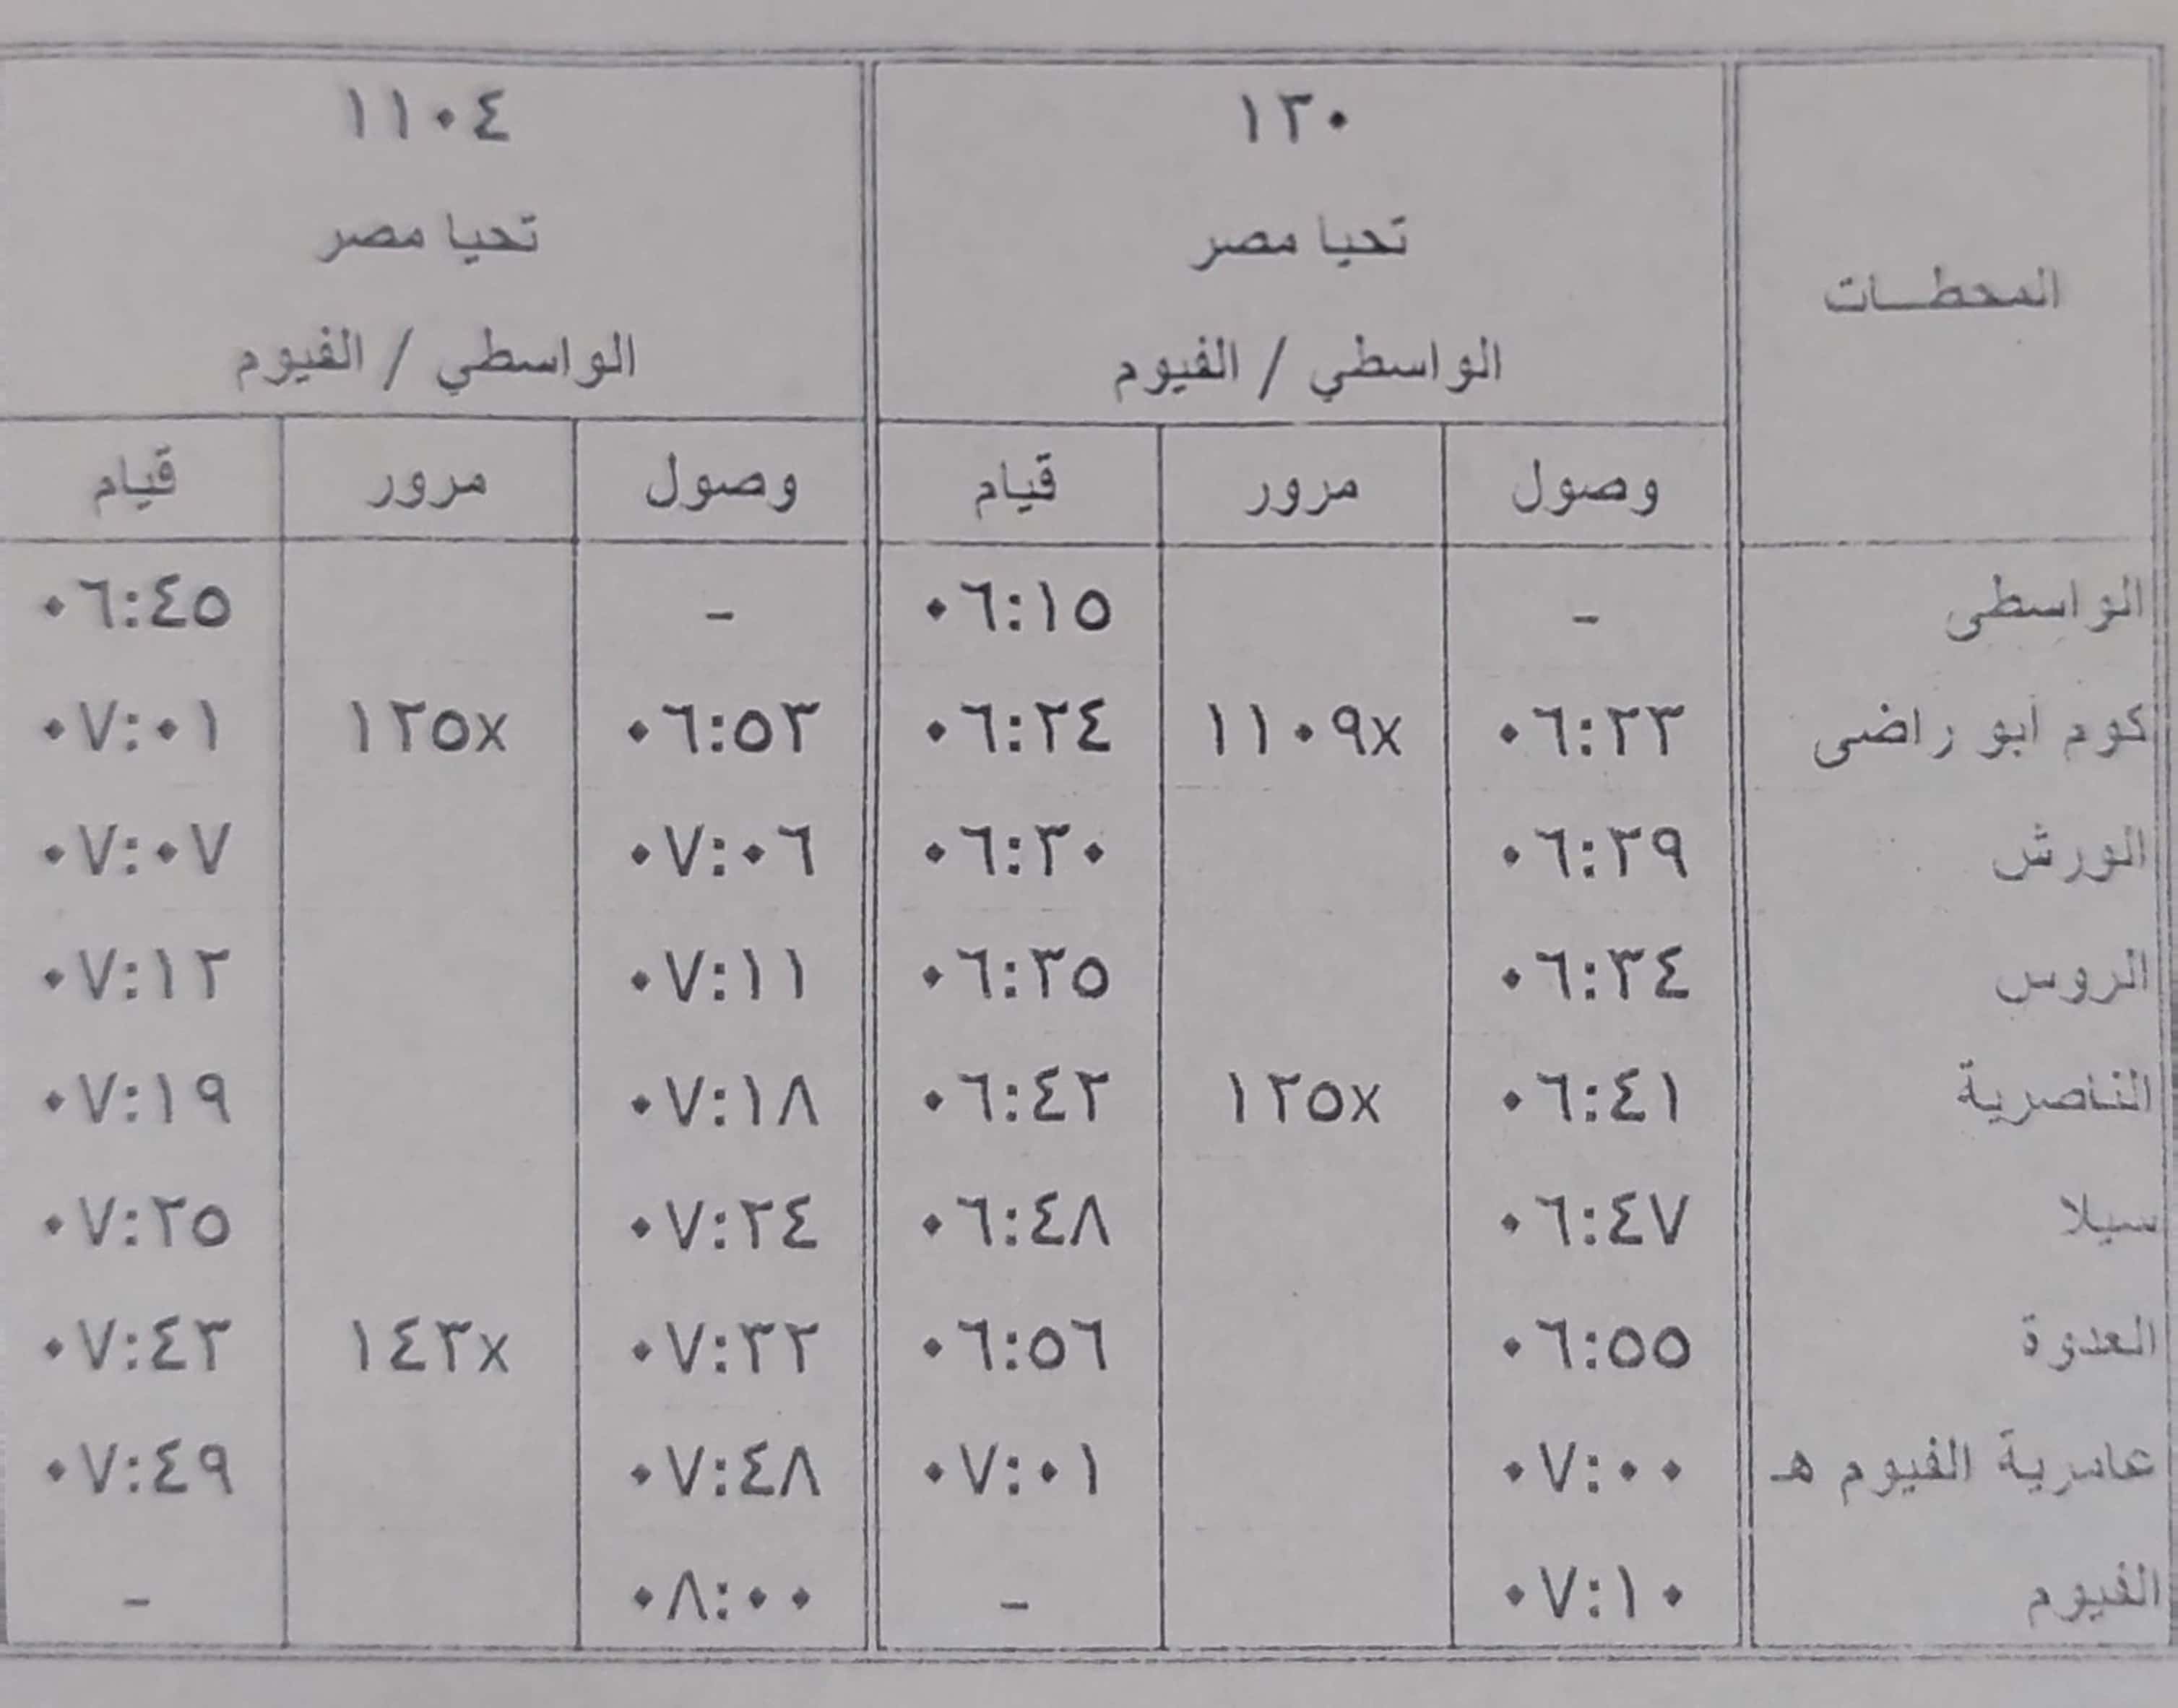 المحطات
١٣٠
تحيا مصر
الواسطي / الفيوم
١١٠٤
تحيا مصر
الواسطي / الفيوم
وصول مرور قيام وصول مرور قيام
الواسطى - ٠٦:١٥ - ٠٦:٤٥
كوم ابو راضى ٠٦:٢٣ ١١٠٩x ٠٦:٢٤ ٠٦:٥٣ ١٢٥x ٠٧:٠١
الورش ٠٦:٢٩ ٠٦:٣٠ ٠٧:٠٦ ٠٧:٠٧
الروس ٠٦:٣٤ ٠٦:٣٥ ٠٧:١١ ٠٧:١٢
الناصرية ٠٦:٤١ ١٢٥x ٠٦:٤٢ ٠٧:١٨ ٠٧:١٩
سيلا ٠٦:٤٧ ٠٦:٤٨ ٠٧:٢٤ ٠٧:٢٥
العدوة ٠٦:٥٥ ٠٦:٥٦ ٠٧:٣٢ ١٤٣x ٠٧:٤٣
عامرية الفيوم هـ ٠٧:٠٠ ٠٧:٠١ ٠٧:٤٨ ٠٧:٤٩
الفيوم ٠٧:١٠ - ٠٨:٠٠ -